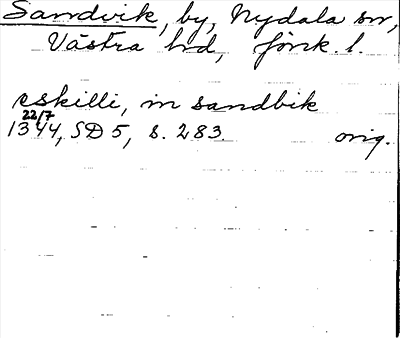 Sandvik, by, Nydala sn,
Västra hd, Jönk. l.
eskilli, in sandbik
22/7
1344, SD 5, s. 283. orig.